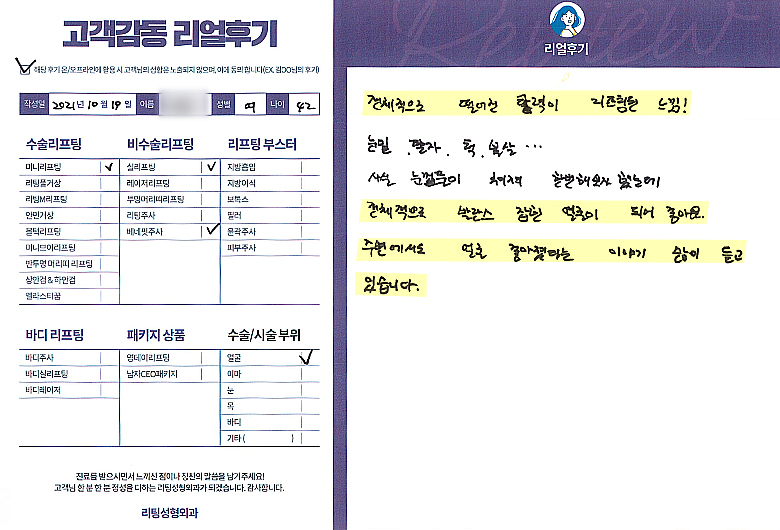 고객감동 리얼후기
해당 후기 온/오프라인에 활용 시 고객님의 성함은 노출되지 않으며, 이에 동의합니다(EX. 김OO님의 후기)
작성일 2021년 10월 19일 이름 성별 여 나이 42
수술리프팅
미니리프팅
리팅풀거상
리팅M리프팅
안면거상
울텍리프팅
미니브이리프팅
반투명 머리띠 리프팅
상안검 & 하안검
엘라스티꿈
비수술리프팅
실리프팅
레이저리프팅
투명머리띠리프팅
리팅주사
베네핏주사
리프팅 부스터
지방흡입
지방이식
보톡스
필러
윤곽주사
피부주사
바디 리프팅
바디주사
바디실리프팅
바디레이저
패키지 상품
영데이리프팅
남자CEO패키지
수술/시술 부위
얼굴
이마
눈
목
바디
기타 ( )
진료를 받으시면서 느끼신 점이나 칭찬의 말씀을 남겨주세요!
고객님 한 분 한 분 정성을 다하는 리팅성형외과가 되겠습니다. 감사합니다.
리팅성형외과
Review
리얼후기
전체적으로 떨어진 탄력이 리프팅된 느낌!
눈밑, 팔자, 턱, 볼살 ...
사실 눈밑꺼짐이 한번 해보자 했는데
전체적으로 발란스 잡힌 얼굴이 되어 좋아요.
주변에서도 얼굴 좋아졌다는 이야기 많이 듣고
있습니다.